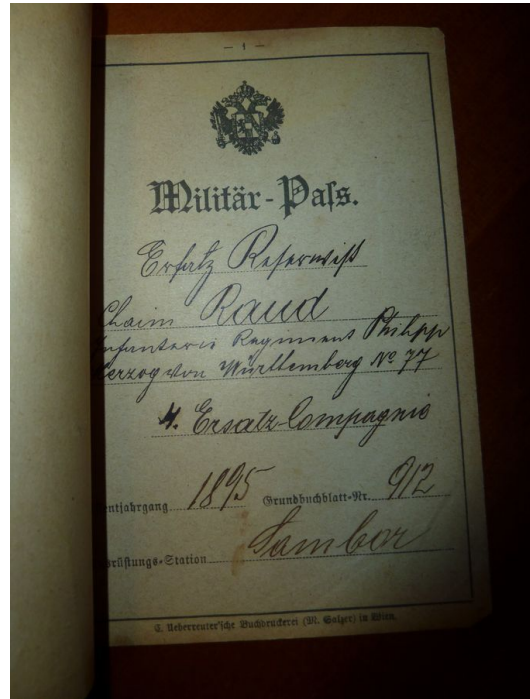 - 1 -
Militär-Paſs.
Ersatz Reservist
Chaim Raud
Infanterie Regiment Philipp
Herzog von Württemberg No 77
4. Ersatz-Compagnie
entjahrgang 1895 Grundbuchblatt-Nr. 912
rüstungs-Station Sambor
C. Ueberreuter'sche Buchdruckerei (M. Salzer) in Wien.